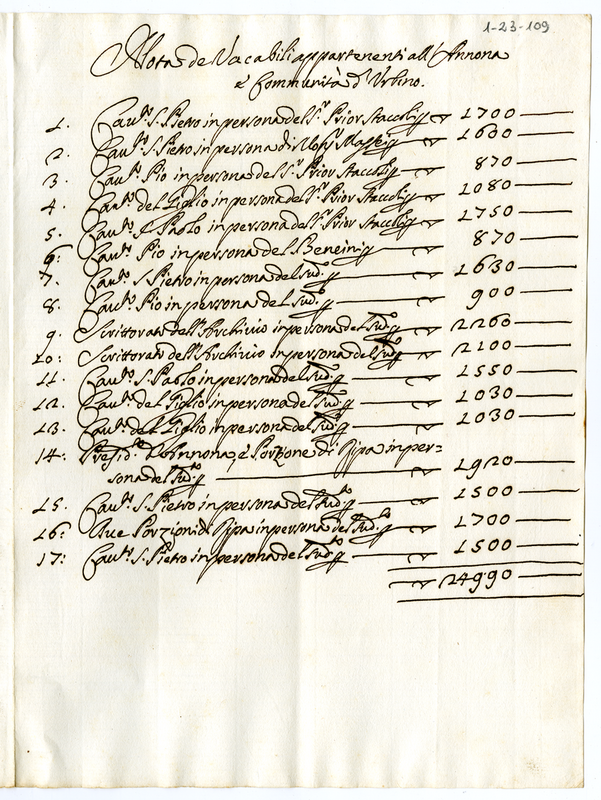 1-23-109
Nota de Vacabili appartenenti all'Annona
e Communità d'Urbino.
1. Caul:to S. Pietro in persona del S.r Prior Staccoli 1700
2. Caul:to S. Pietro in persona di Mons.r Massei 1630
3. Caul:to Pio in persona del S.r Prior Staccoli 870
4. Caul:to del Giglio in persona del S.r Prior Staccoli 1080
5. Caul:to S. Paolo in persona del S.r Prior Staccoli 1750
6: Caul:to Pio in persona del Beneini 870
7. Caul:to S. Pietro in persona del Sud.to 1630
8. Caul:to Pio in persona del Sud.to 900
9. Scrittorato dell'Archivio in persona del Sud.to 2260
10: Scrittorato dell'Archivio in persona del Sud.to 2100
11. Caul:to S. Paolo in persona del Sud.to 1550
12. Caul:to del Giglio in persona del Sud.to 1030
13. Caul:to del Giglio in persona del Sud.to 1030
14: Presid.to d'Annona, e Porzione di Ripa in per=
sona del Sud.to 1920
15. Caul:to S. Pietro in persona del Sud.to 1500
16: Due Porzioni di Ripa in persona del Sud.to 1700
17: Caul:to S. Pietro in persona del Sud.to 1500
24990